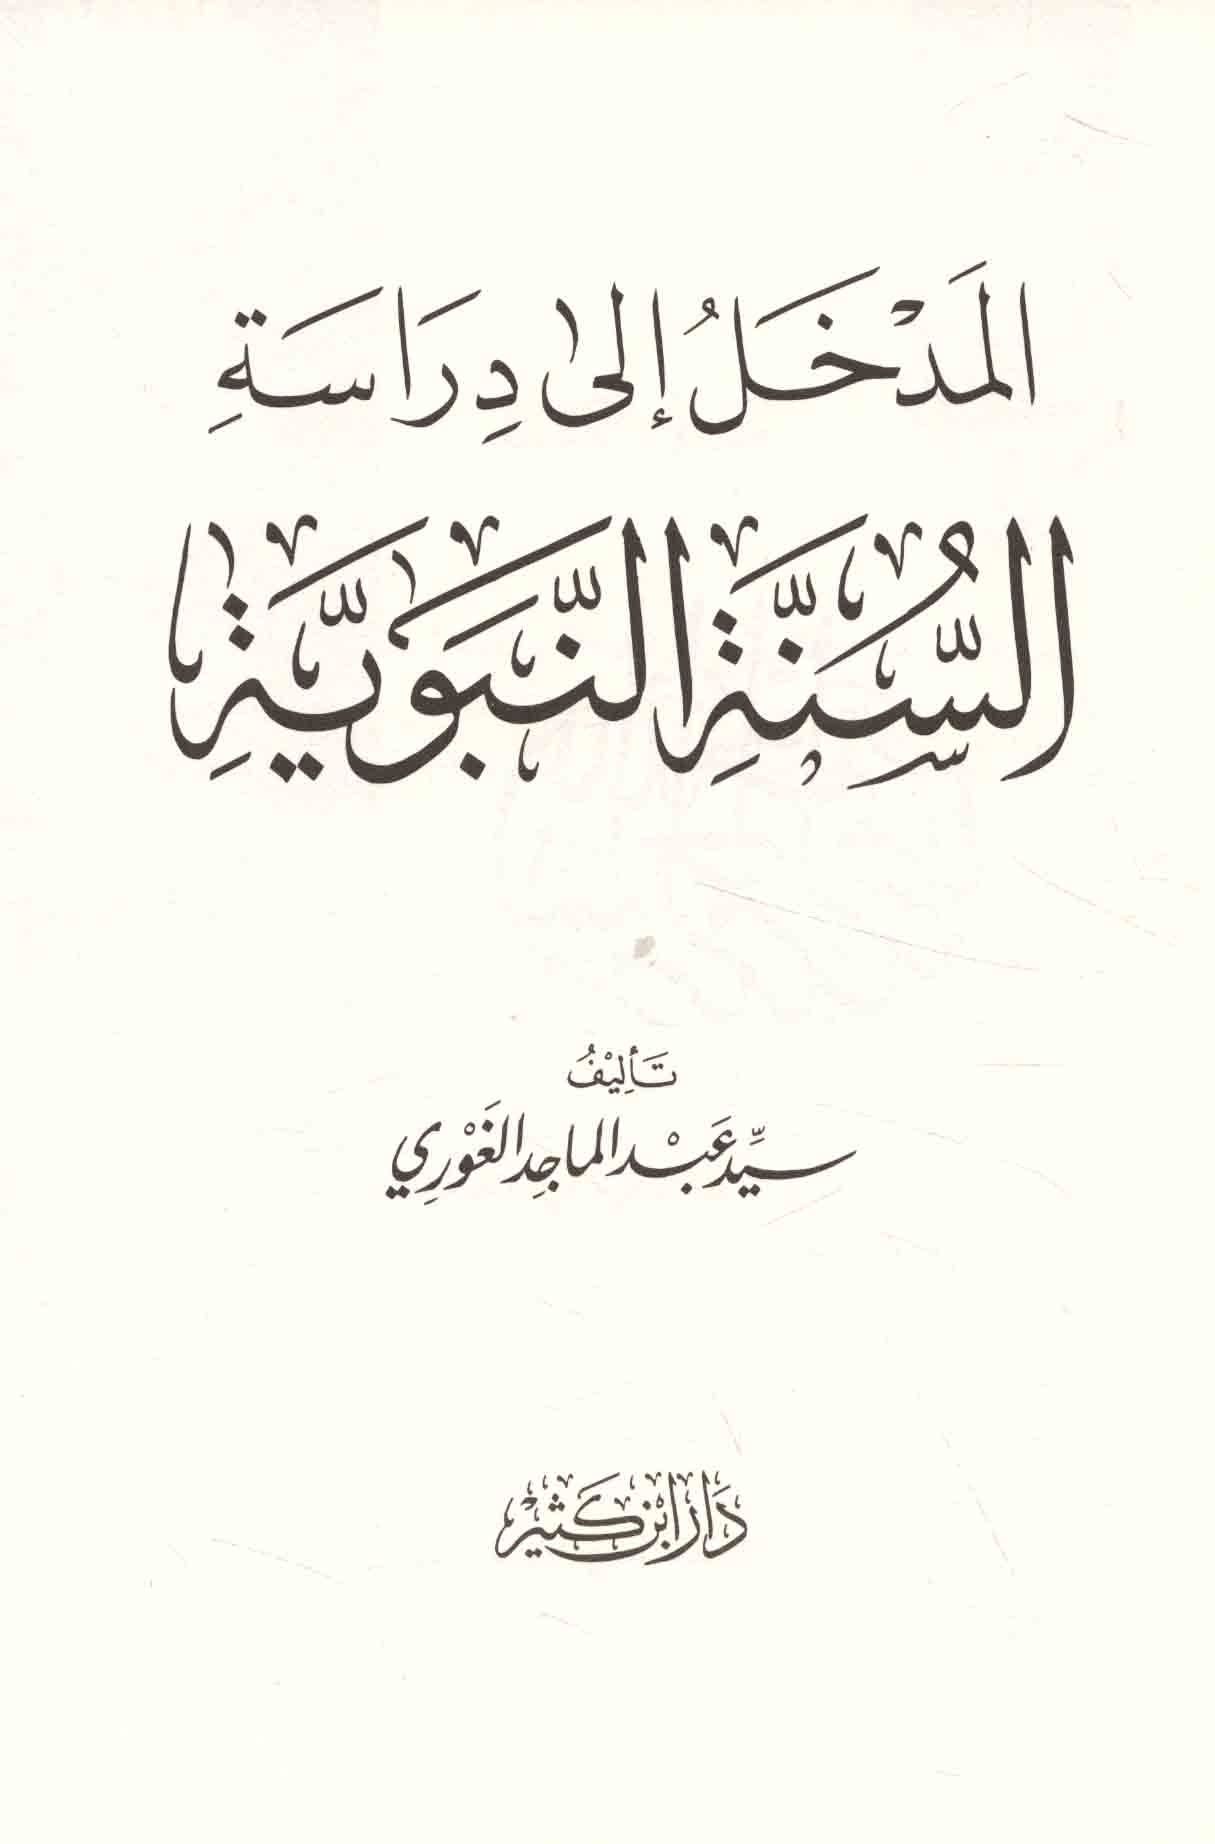 المَدْخَلُ إلى دِرَاسَةِ
السُّنَّةِ النَّبَوِيَّةِ
تَأليْفُ
سيِّد عَبْد الماجِد الغَوْرِي
دَار ابْن كَثيْر